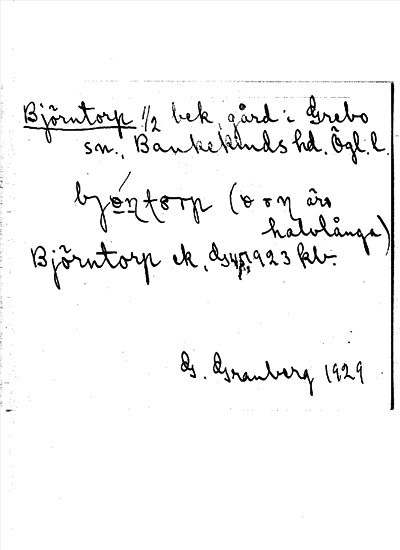 Björntorp 1/2 bek. gård i Grebo
sn., Bankekinds hd. Ögl. l.
(ɵ o η äro
halvlånga)
Björntorp ek, 1923 kbr.
G. Granberg 1929